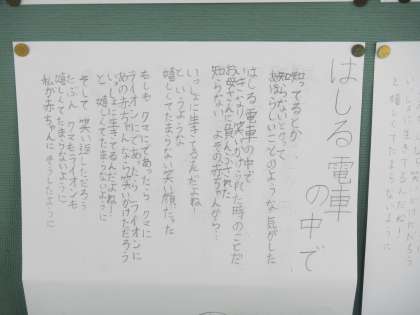 はしる電車
の中で
知ってるとか
知らないとかって
あほらしいことのような気がした
はしる電車の中で
いきなり笑いかけられた時のことだ
お母さんに負んぶされた
知らない よその赤ちゃんから…
いっしょに生きてるんだよね!
というような
嬉しくてたまらない笑い顔だった
もしも クマにであったら クマに
ライオンにであったら ライオンに
あの赤ちゃんは 笑いかけただろう
いっしょに生きてるんだよね!
と 嬉しくてたまらないように
そして 笑い返しただろう
たぶん クマもライオンも
嬉しくてたまらないように
私が赤ちゃんに そうしたように